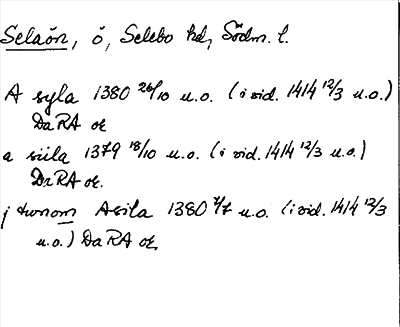 Selaön, ö, Selebo hd, Södm. l.
A syla 1380 26/10 u.o. (i vid. 1414 12/3 u.o.)
DaRA or.
a siila 1379 18/10 u.o. (i vid. 1414 12/3 u.o.)
DaRA or.
j Asila 1380 u.o. (i vid. 1414 12/3
u.o.) DaRA or.